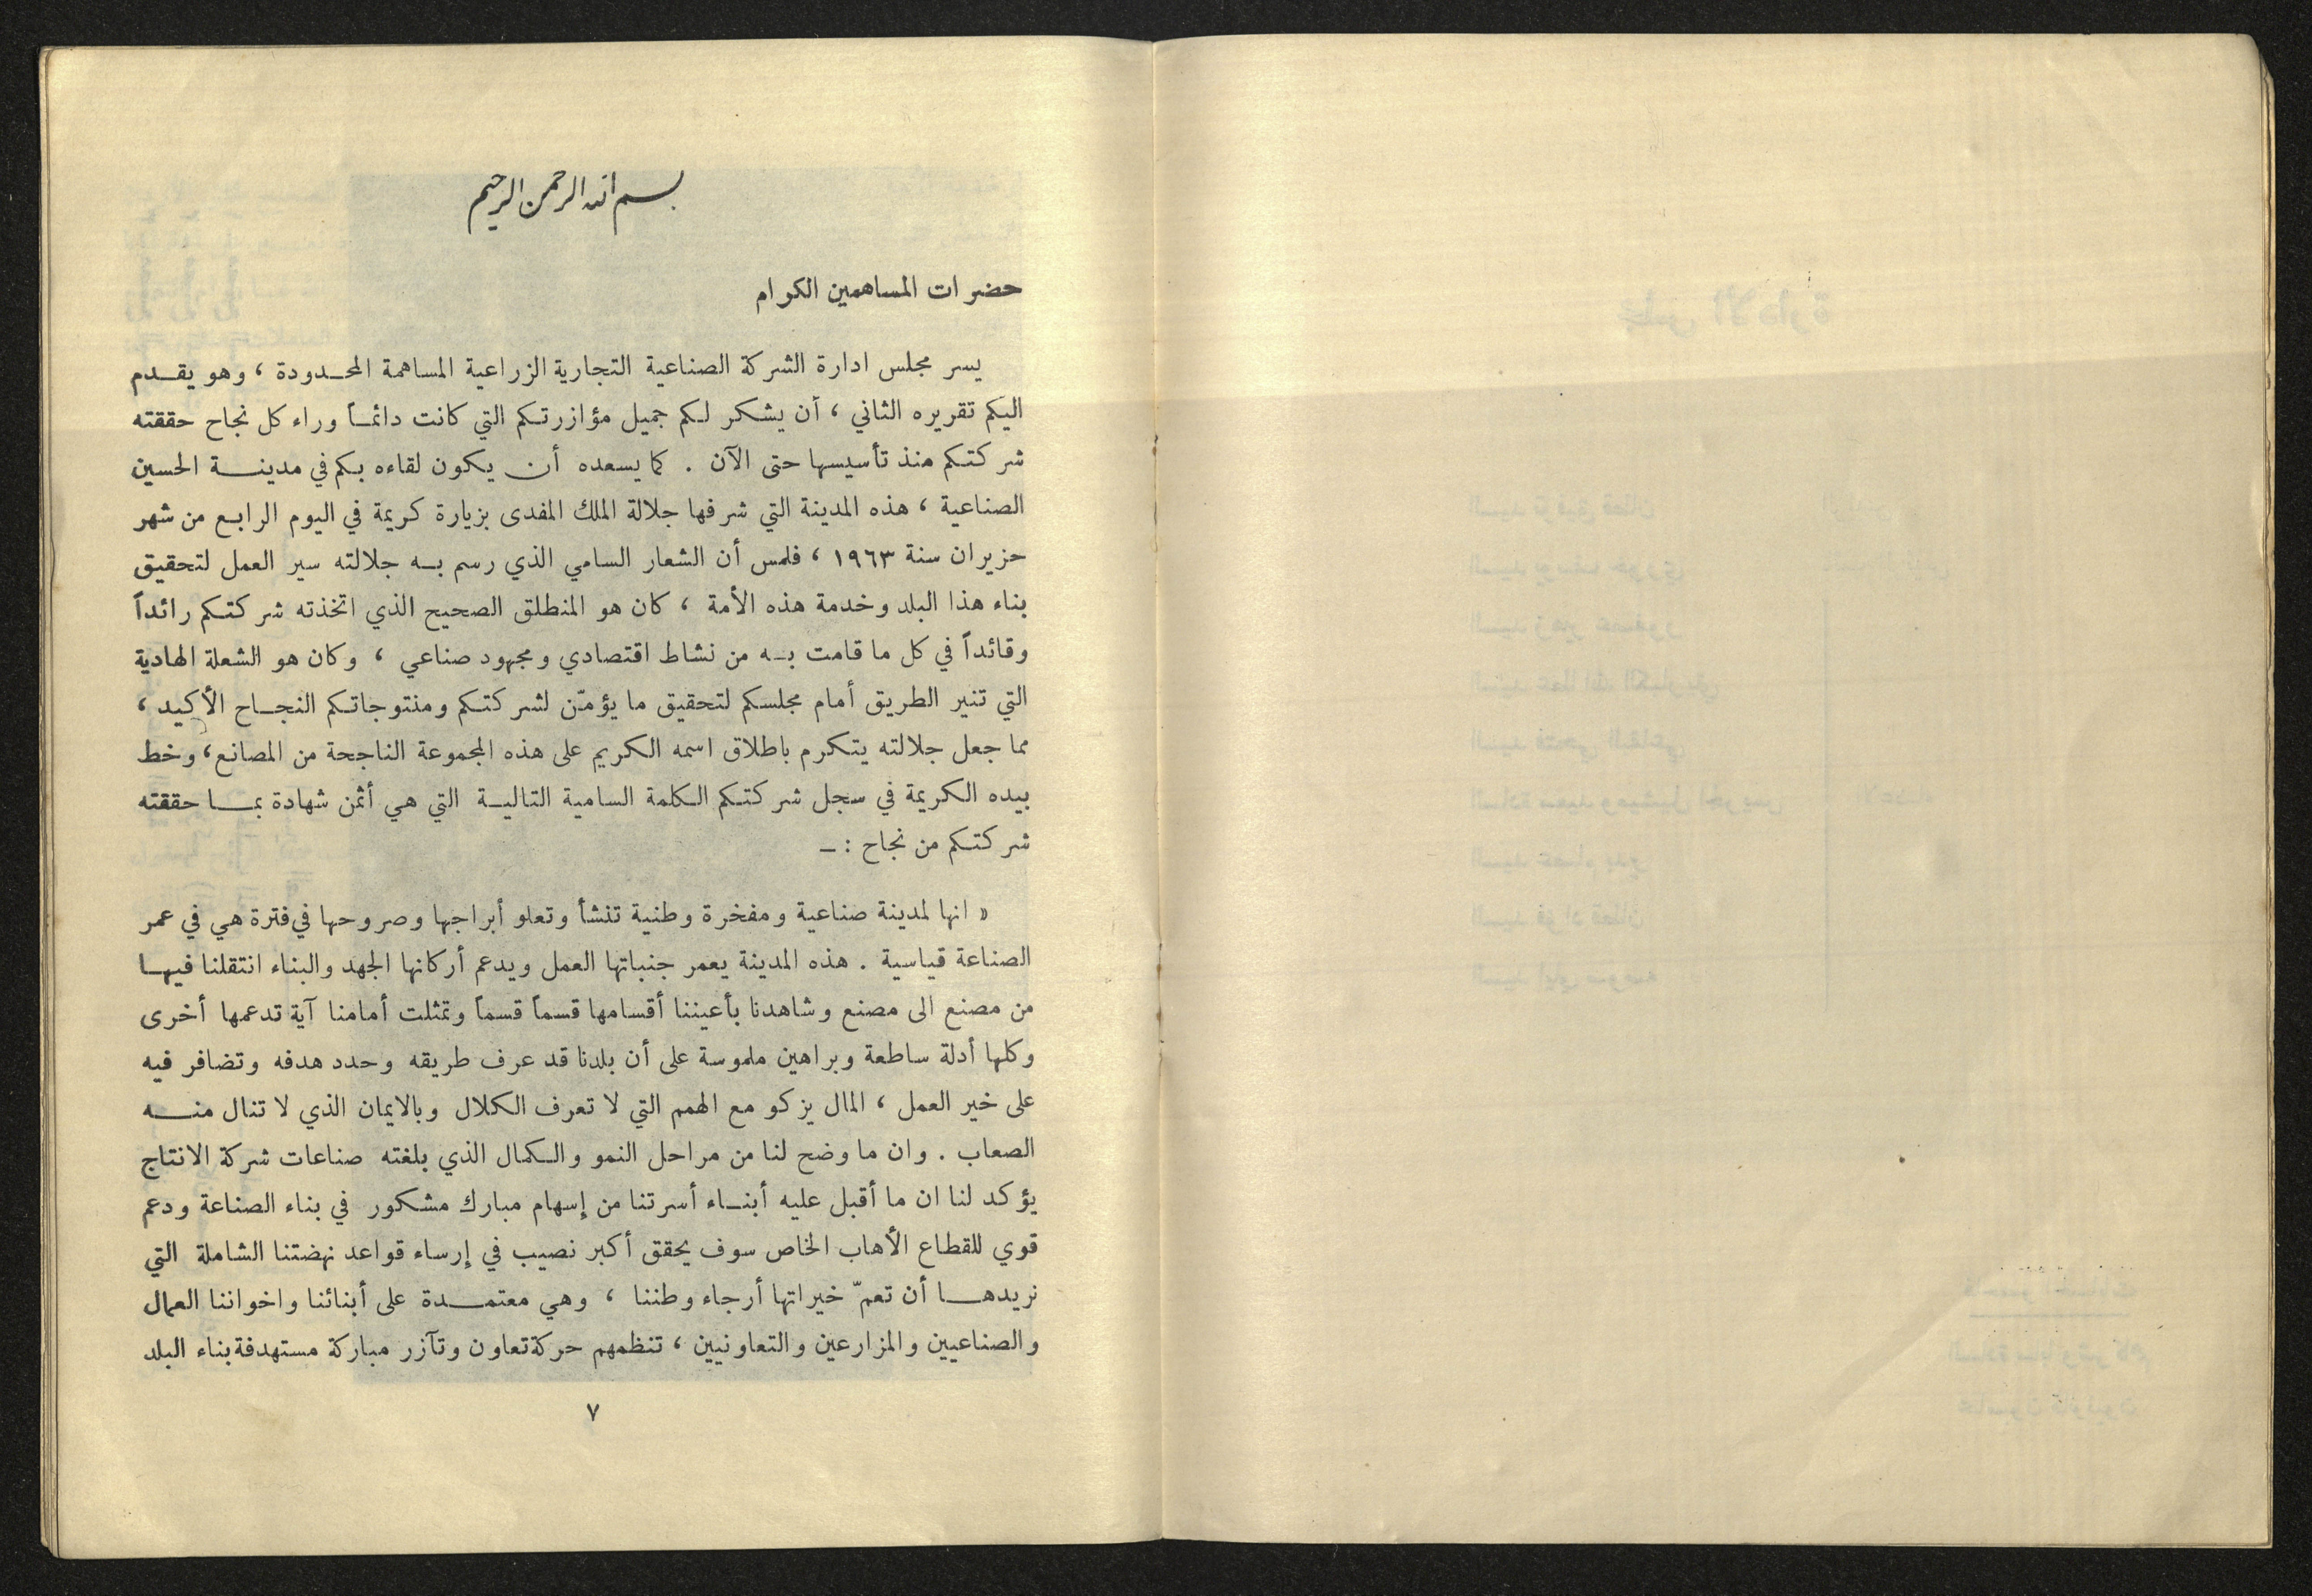 بسم الله الرحمن الرحيم
حضرات المساهمين الكرام
يسر مجلس ادارة الشركة الصناعية التجارية الزراعية المساهمة المحدودة ، وهو يقدم
اليكم تقريره الثاني ، أن يشكر لكم جميل مؤازرتكم التي كانت دائماً وراء كل نجاح حققته
شركتكم منذ تأسيسها حتى الآن . كما يسعده أن يكون لقاءه بكم في مدينة الحسين
الصناعية ، هذه المدينة التي شرفها جلالة الملك المفدى بزيارة كريمة في اليوم الرابع من شهر
حزيران سنة ١٩٦٣ ، فلمس أن الشعار السامي الذي رسم به جلالته سير العمل لتحقيق
بناء هذا البلد وخدمة هذه الأمة ، كان هو المنطلق الصحيح الذي اتخذته شركتكم رائداً
وقائداً في كل ما قامت به من نشاط اقتصادي ومجهود صناعي ، وكان هو الشعلة الهادية
التي تنير الطريق أمام مجلسكم لتحقيق ما يؤمّن لشركتكم ومنتوجاتكم النجاح الأكيد ،
مما جعل جلالته يتكرم باطلاق اسمه الكريم على هذه المجموعة الناجحة من المصانع ، وخط
بيده الكريمة في سجل شركتكم الكلمة السامية التالية التي هي أثمن شهادة بما حققته
شركتكم من نجاح : –
« انها لمدينة صناعية ومفخرة وطنية تنشأ وتعلو أبراجها وصروحها في فترة هي في عمر
الصناعة قياسية . هذه المدينة يعمر جنباتها العمل ويدعم أركانها الجهد والبناء انتقلنا فيها
من مصنع الى مصنع وشاهدنا بأعيننا أقسامها قسماً قسماً وتمثلت أمامنا آية تدعمها أخرى
وكلها أدلة ساطعة وبراهين ملموسة على أن بلدنا قد عرف طريقه وحدد هدفه وتضافر فيه
على خير العمل ، المال يزكو مع الهمم التي لا تعرف الكلال وبالايمان الذي لا تنال منه
الصعاب . وان ما وضح لنا من مراحل النمو والكمال الذي بلغته صناعات شركة الانتاج
يؤكد لنا ان ما أقبل عليه أبناء أسرتنا من إسهام مبارك مشكور في بناء الصناعة ودعم
قوي للقطاع الأهاب الخاص سوف يحقق أكبر نصيب في إرساء قواعد نهضتنا الشاملة التي
نريدها أن تعمّ خيراتها أرجاء وطننا ، وهي معتمدة على أبنائنا واخواننا العمال
والصناعيين والمزارعين والتعاونيين ، تنظمهم حركة تعاون وتآزر مباركة مستهدفة بناء البلد
٧